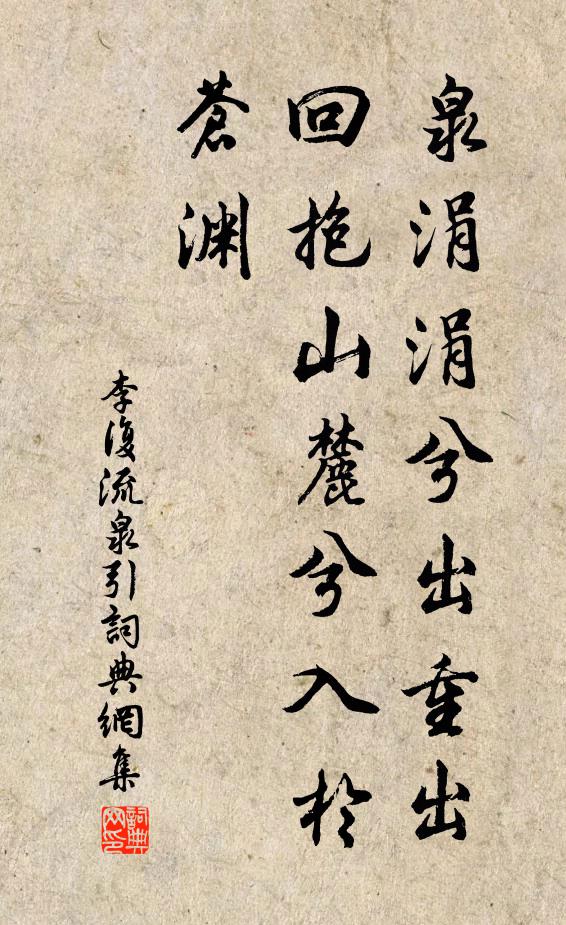 泉涓涓兮出重出
回抱山麓兮入於
蒼渊
李復流泉引詞典網集
詞典
网印